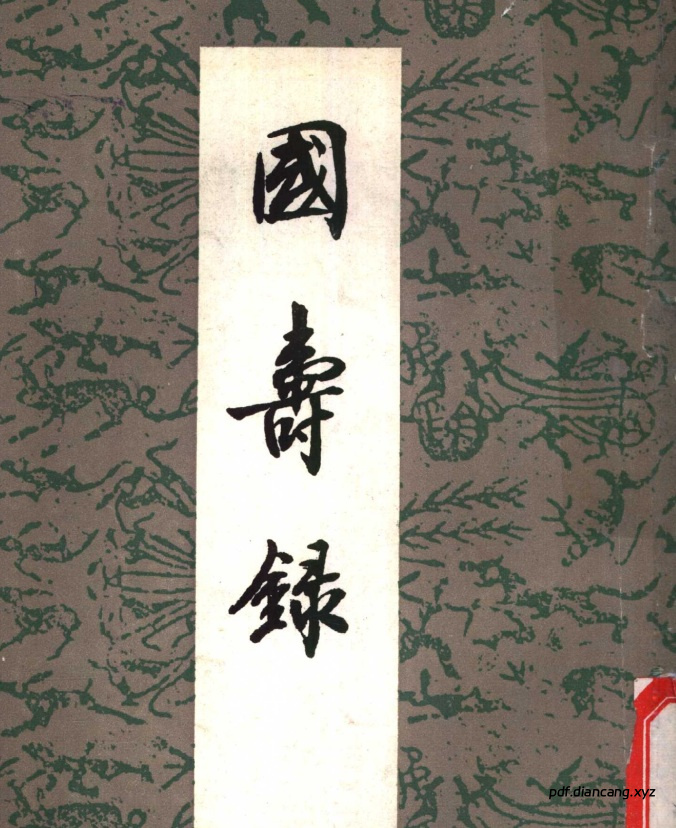 國壽録
pdf.diancang.xyz